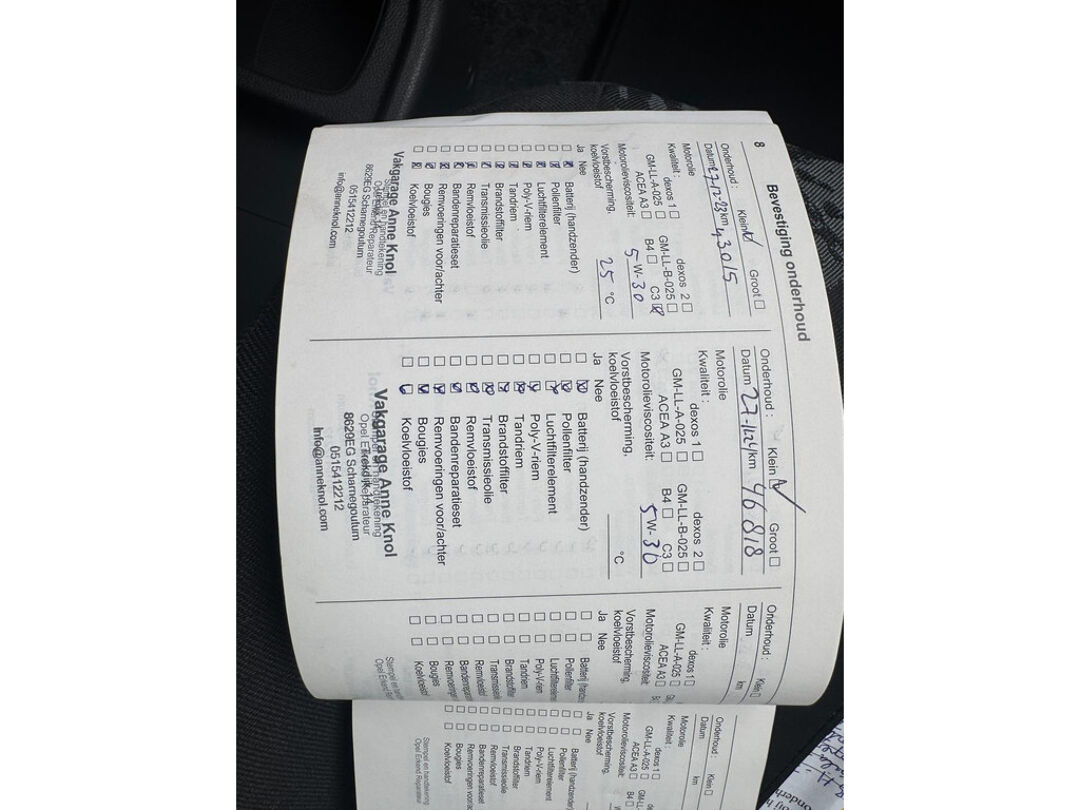 8
Bevestiging onderhoud
Onderhoud : Klein Groot
Datum 27-12-23 km 43015
Motorolie
Kwaliteit : dexos 1 dexos 2
GM-LL-A-025 GM-LL-B-025
ACEA A3 B4 C3
Motorolieviscositeit: 5 W- 30
Vorstbescherming,
koelvloeistof 25 °C
Ja Nee
Batterij (handzender)
Pollenfilter
Luchtfilterelement
Poly-V-riem
Tandriem
Brandstoffilter
Transmissieolie
Remvloeistof
Bandenreparatieset
Remvoeringen voor/achter
Bougies
Koelvloeistof
Vakgarage Anne Knol
Stempel en handtekening
Opel Erkend Reparateur
8629EG Scharnegoutum
0515412212
info@anneknol.com
Onderhoud : Klein Groot
Datum 27-1124 km 46818
Motorolie
Kwaliteit : dexos 1 dexos 2
GM-LL-A-025 GM-LL-B-025
ACEA A3 B4 C3
Motorolieviscositeit: 5 W- 30
Vorstbescherming,
koelvloeistof °C
Ja Nee
Batterij (handzender)
Pollenfilter
Luchtfilterelement
Poly-V-riem
Tandriem
Brandstoffilter
Transmissieolie
Remvloeistof
Bandenreparatieset
Remvoeringen voor/achter
Bougies
Koelvloeistof
Vakgarage Anne Knol
Opel Erkend Reparateur
8629EG Scharnegoutum
0515412212
Info@anneknol.com
Onderhoud : Klein
Datum km
Motorolie
Kwaliteit : dexos 1
GM-LL-A-025
ACEA A3
Motorolieviscositeit
Vorstbescherming,
koelvloeistof
Ja Nee
Batterij (handz
Pollenfilter
Luchtfilterelem
Poly-V-rien
Tandrien
Brandstoffilter
Transmissie
Remvloeist
Bandenrepara
Remvoering
Bougies
Koelvloeist
Stempel en
Opel Erkend Re
Onderhoud : Klein
Datum km
Motorolie
Kwaliteit : dexos 1
GM-LL-A-025
ACEA A3 B4
Motorolieviscositeit:
Vorstbescherming,
koelvloeistof
Ja Nee
Batterij (handze
Pollenfilter
Luchtfilterelement
Poly-V-riem
Tandriem
Brandstoffilter
Transmissieolie
Remvloeistof
Bandenreparatieset
Remvoeringen voor/ac
Bougies
Koelvloeistof
Stempel en handtekening
Opel Erkend Reparateur